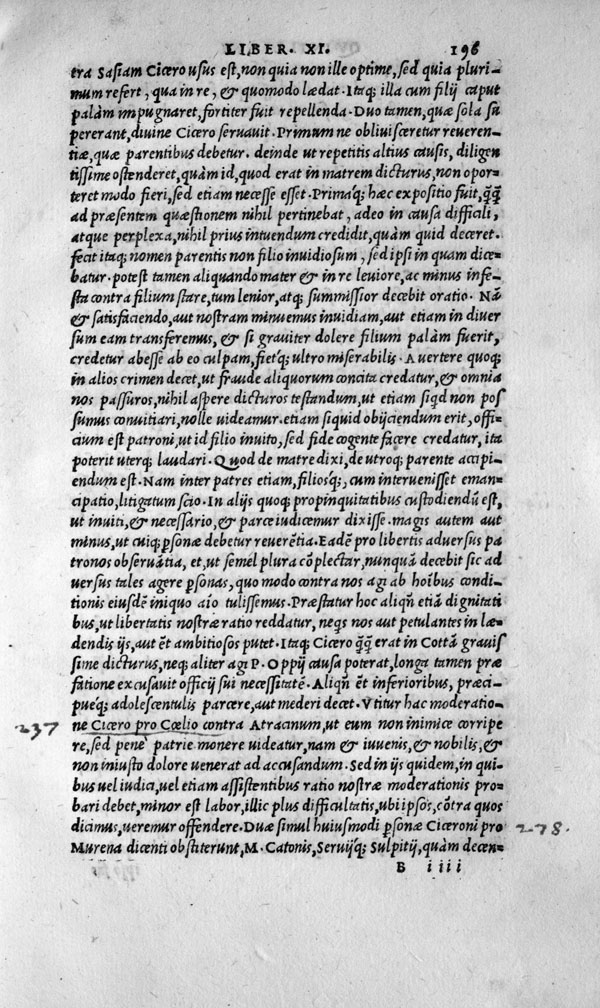 LIBER. XI. 196
tra Sasiam Cicero usus est, non quia non ille optime, sed quia pluri-
mum refert, qua in re, & quomodo lædat. Itaq; illa cum filij caput
palàm impugnaret, fortiter fuit repellenda. Duo tamen, quæ sola su
pererant, divine Cicero servavit. Primum ne oblivisceretur reveren-
tiæ, quæ parentibus debetur. deinde ut repetitis altius causis, diligen
tissime ostenderet, quàm id, quod erat in matrem dicturus, non opor-
teret modo fieri, sed etiam necesse esset. Primaq; hæc expositio fuit, q̃q̃
ad præsentem quæstionem nihil pertinebat, adeo in causa difficili,
atque perplexa, nihil prius intuendum credidit, quàm quid deceret.
fecit itaq; nomen parentis non filio invidiosum, sed ipsi in quam dice-
batur. potest tamen aliquando mater & in re leviore, ac minus infe-
sta contra filium stare, tum lenior, atq; summissior decebit oratio. Nã
& satisfaciendo, aut nostram minuemus invidiam, aut etiam in diver
sum eam transferemus, & si graviter dolere filium palàm fuerit,
credetur abesse ab eo culpam, fietq; ultro miserabilis. Avertere quoq;
in alios crimen decet, ut fraude aliquorum concita credatur, & omnia
nos passuros, nihil aspere dicturos testandum, ut etiam siqd non pos
sumus convitiari, nolle uideamur. etiam siquid obijciendum erit, offi-
cium est patroni, ut id filio invito, sed fide cogente facere credatur, ita
poterit uterq; laudari. Quod de matre dixi, de utroq; parente accipi-
endum est. Nam inter patres etiam, filiosq;, cum intervenisset eman-
cipatio, litigatum scio. In alijs quoq; propinquitatibus custodiendũ est,
ut inviti, & necessario, & parce iudicemur dixisse. magis autem aut
minus, ut cuiq; psonæ debetur reverẽtia. Eadẽ pro libertis adversus pa
tronos observãtia, et, ut semel plura cõplectar, nunquã decebit sic ad
versus tales agere psonas, quo modo contra nos agi ab hoibus condi-
tionis eiusdẽ iniquo aĩo tulissemus. Præstatur hoc aliqñ etiã dignitati
bus, ut libertatis nostræ ratio reddatur, neqs nos aut petulantes in læ-
dendis ijs, aut ẽt ambitiosos putet. Itaq; Cicero q̃q̃ erat in Cottã graviss
sime dicturus, neq; aliter agi P. Oppij causa poterat, longa tamen præ
fatione excusavit officij sui necessitatẽ. Aliqñ ẽt inferioribus, præci-
pueq; adolescentulis parcere, aut mederi decet. Vtitur hac moderatio-
237 ne Cicero pro Cœlio contra Atracinum, ut eum non inimice corripe
re, sed penè patrie monere uideatur, nam & iuvenis, & nobilis, &
non iniusto dolore venerat ad accusandum. Sed in ijs quidem, in qui-
bus uel iudici, uel etiam assistentibus ratio nostræ moderationis pro-
bari debet, minor est labor, illic plus difficultatis, ubi ipsos, cõtra quos
dicimus, veremur offendere. Duæ simul huiusmodi psonæ Ciceroni pro 278.
Murena dicenti obstiterunt, M. Catonis, Servijq; Sulpitij, quàm decen-
B iiii